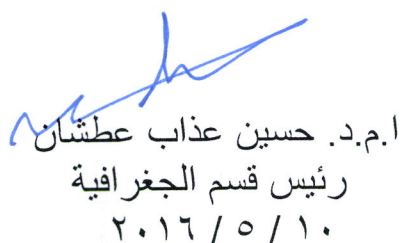 ا.م.د. حسين عذاب عطشان
رئيس قسم الجغرافية
١٠ / ٥ / ٢٠١٦